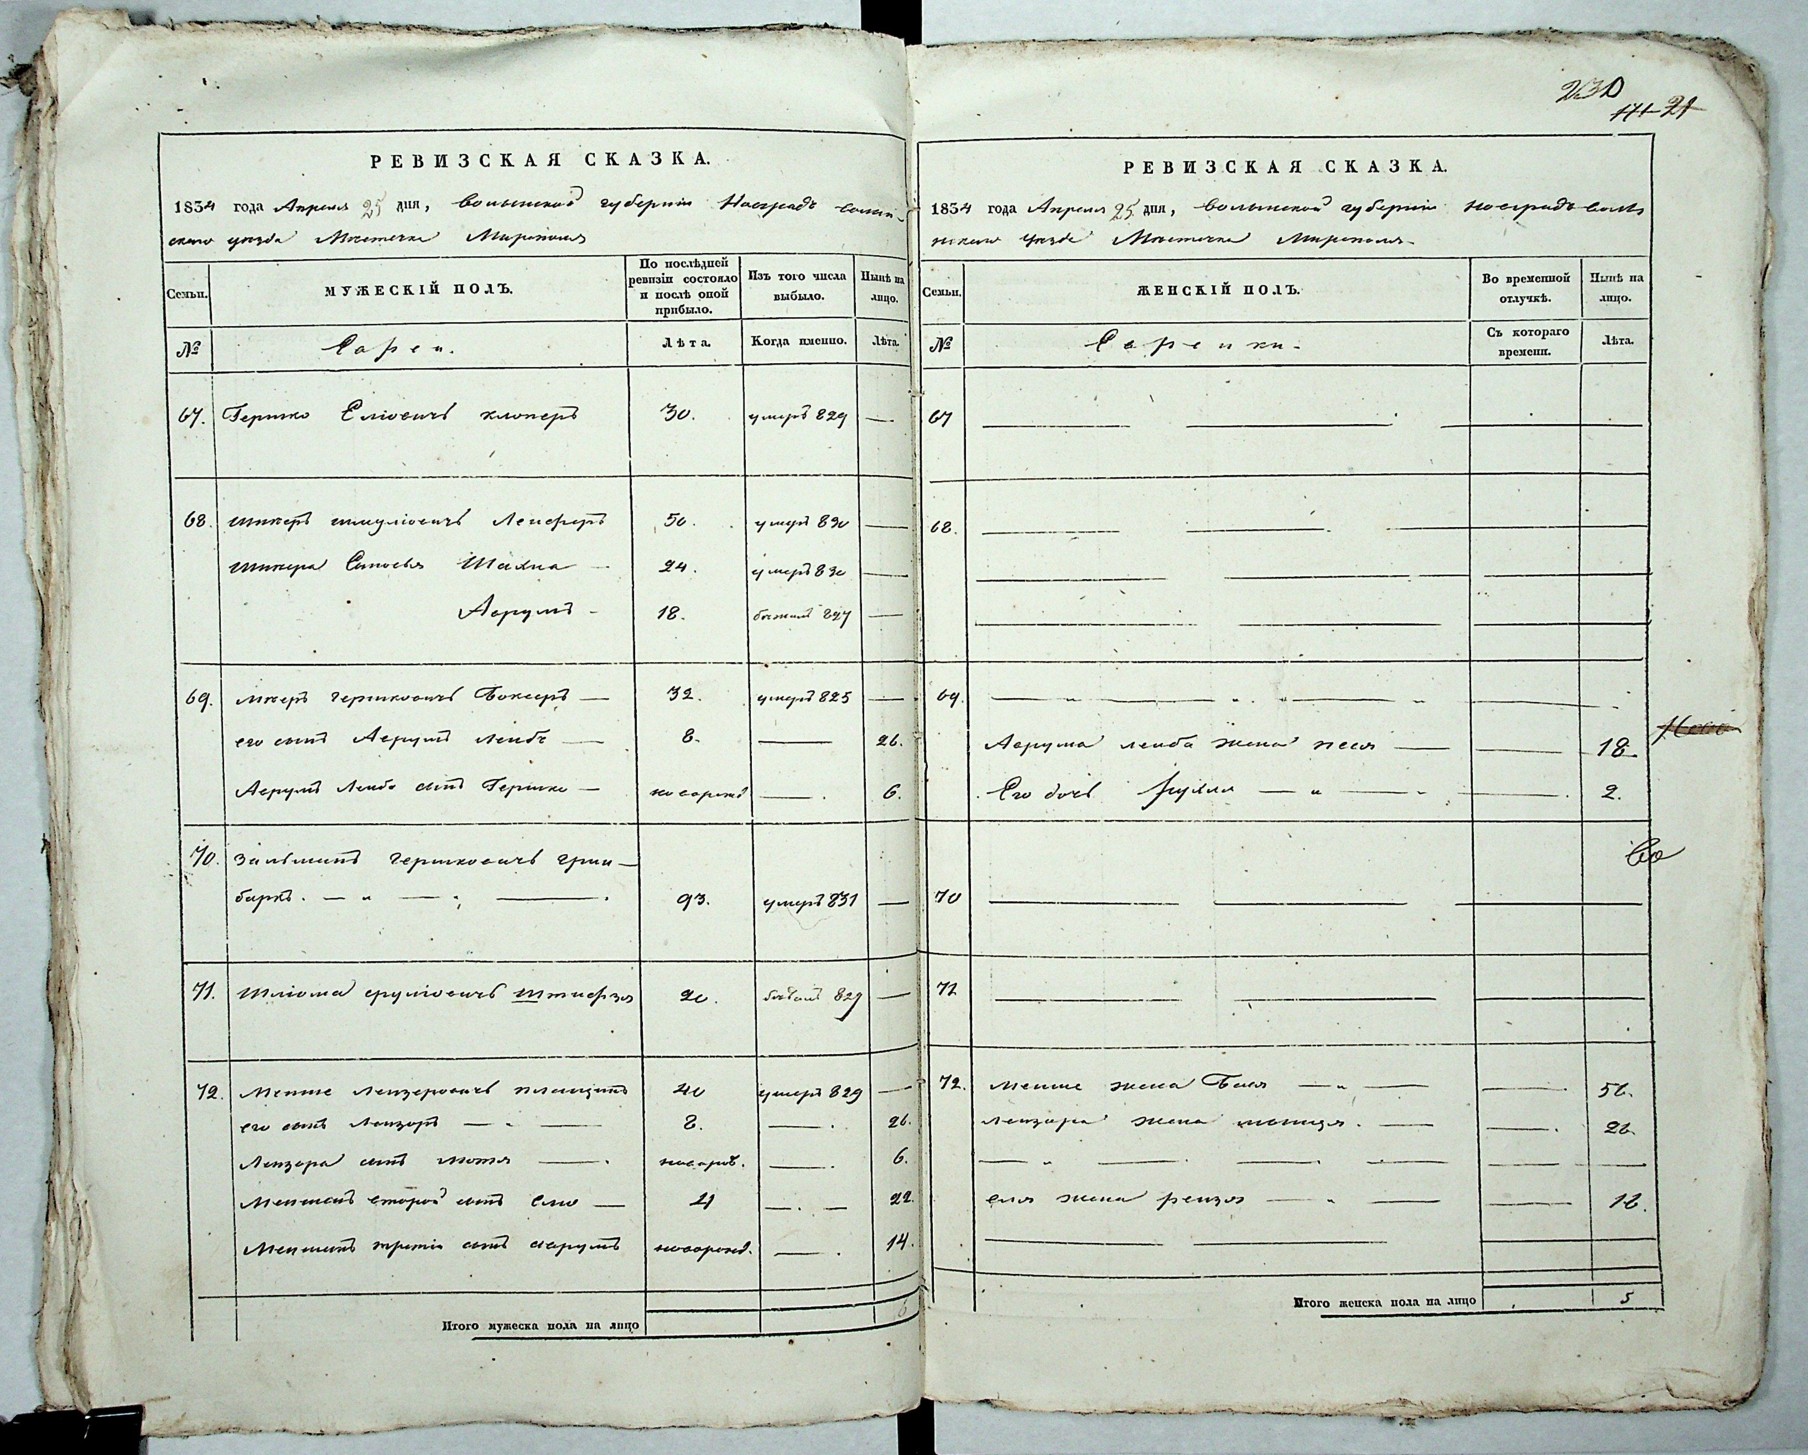 230
171 21
РЕВИЗСКАЯ СКАЗКА.
1834 года Апреля 25 дня, Волынской губернiи Новградъ волын-
скаго уезда Местечка Мирополя
Семьи.
МУЖЕСКIЙ ПОЛЪ.
По послѣдней ревизiи состояло и послѣ оной прибыло.
Изъ того числа выбыло.
Нынѣ на лицо.
№
Евреи.
Лѣта.
Когда именно.
Лѣта.
67. Гершко Елiовичъ 30. умеръ 829 —
68. Шмулiовичъ 50. умеръ 830 —
Сыновья Шахна — 24. умеръ 830 —
Аврумъ — 18. 827 —
69. Гершковичъ — 32. умеръ 825 —
его сынъ Аврумъ Лейба — 8. — 26.
Аврумъ Лейба сынъ Гершко — новорожд — 6.
70. Зельманъ Гершковичъ Грин-
бархъ. — „ — 93. умеръ 831 —
71. Шлiома Срулiовичъ 20. 829 —
72. Лейзеровичъ 40 умеръ 829 —
его сынъ Лейзоръ — „ — 8. — 26.
Лейзора сынъ Мотя — новорож. — 6.
второй сынъ Елю — 4 — 22.
третiй сынъ Аврумъ новорожд. — 14.
Итого мужеска пола на лицо 6
РЕВИЗСКАЯ СКАЗКА.
1834 года Апреля 25 дня, Волынской губернiи Новградъ волын
скаго уезда Местечка Мирополя
Семьи.
ЖЕНСКIЙ ПОЛЪ.
Во временной отлучкѣ.
Нынѣ на лицо.
№
Еврейки.
Съ котораго времени.
Лѣта.
67
68.
69.
Аврума Лейба жена Песя — 18
Его дочь Рухля — „ — 2.
70
71
72. жена Бася — „ — 56.
Лейзора жена — 26
Еля жена Рейзя — „ — 18.
Итого женска пола на лицо 5